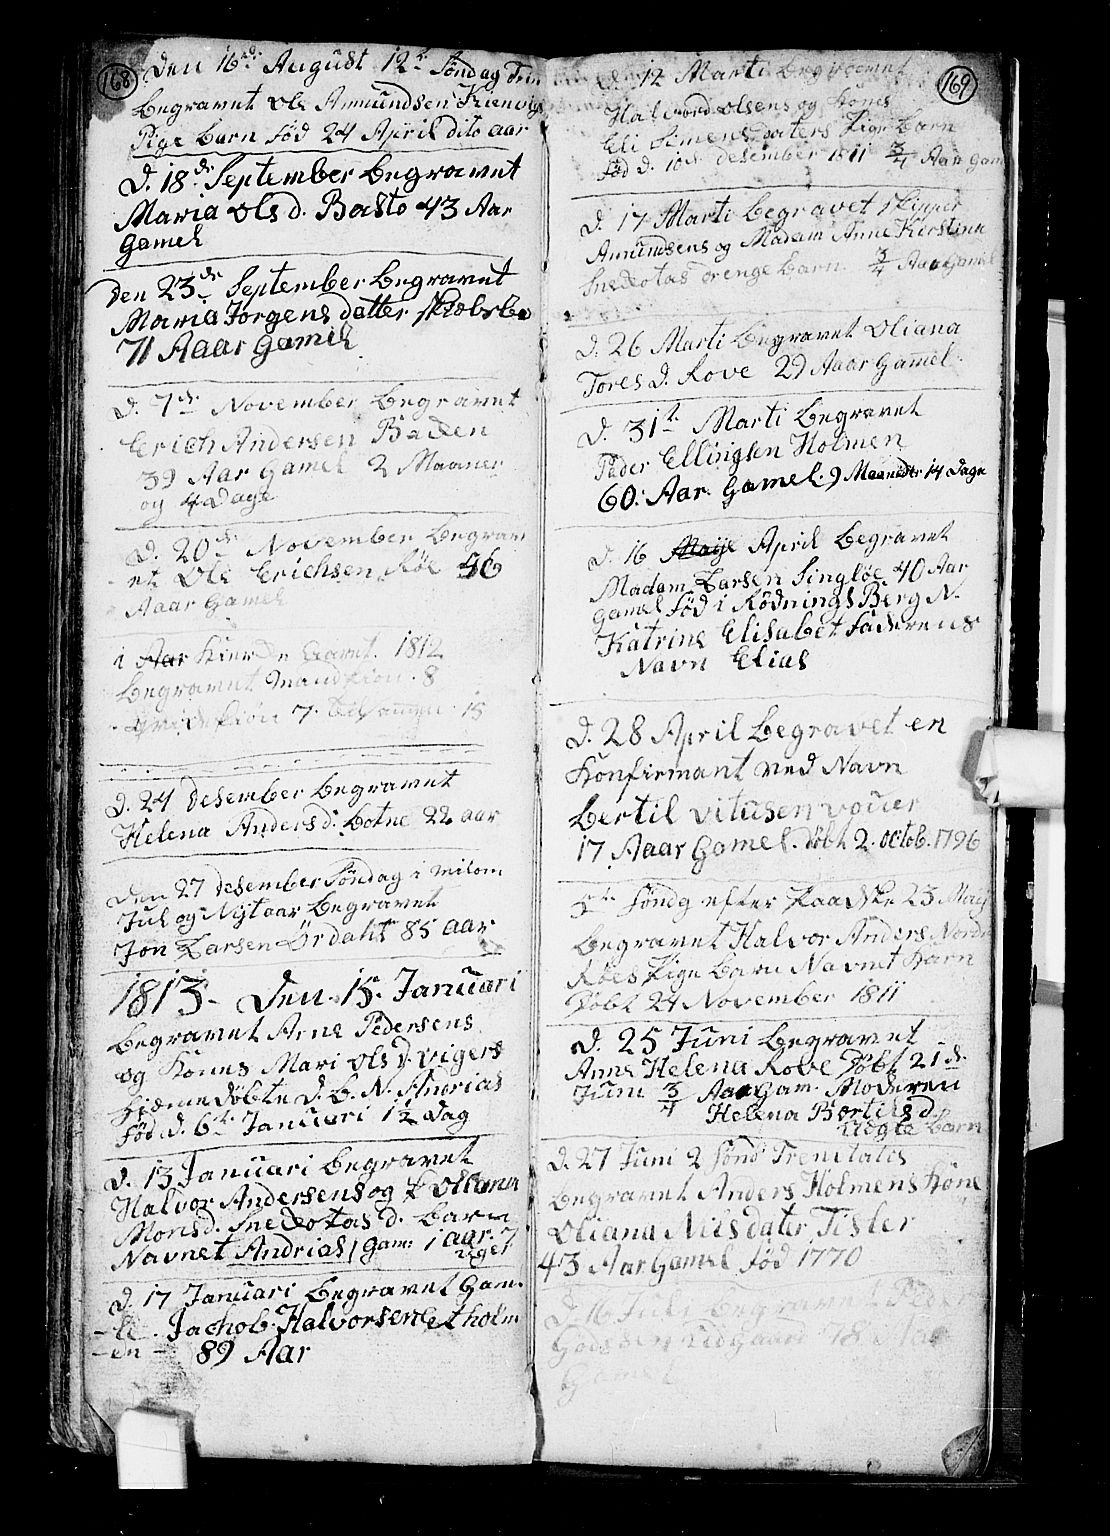 168
Den 16de August 12te Søndag Trin
begravet Ole Amundsen
Pige barn Fød 24 April dito aar
D. 18de September begravet
Maria Ols d. Basto 43 Aar
Gamel
Den 23de September begravet
Maria Jorgens datter
71 Aaar Gamel
D. 7de November begravet
Erich Andersen Backen
39 Aar Gamel 2 Maaner
og 4 Dage
D. 20de November begrav
et Ole Erichsen Røe 46
Aaar Gamel
i Aar Kierde Aaret 1812
begravet Mandkiøn 8
qvindekiøn 7 tilsamen 15
D. 24 desember begravet
Helena Anders d. Botne 22 aar
Den 27 desember Søndag i milom
Jul og Nytaar begravet
Jon Larsen Ørdahl 85 aar
1813. Den 15 Januari
begravet Arne Pedersens
og Kones Mari Ols d. Vigers
hiemedøbte D. B. N. Andrias
Fød d. 6te Januari 1½ Dag
D. 13 Januari begravet
Halvor Andersens og K Oliana
Mons d. Snekotas d. barn
Navnet Andrias / Gam: 1 aar 7
uger
D. 17 Januari begravet Gam-
le Jachob Halvorsen Letholm
en 89 Aar
169
d. 12 Marti begravet
Halvord Olsens og Kones
Eli Simensdaters Pige barn
Fød d. 10de desember 1811 3/4 Aar Gam
D. 17 Marti begravet skipper
Amundsens og Madam Anne Kirstina
Snekotas drenge barn 3/4 Aar Gamel
D. 26 Marti begravet Oliana
Tores d. Rove 29 Aaar Gammel
D. 31te Marti begravet
Peder Ellingsen Holmen
60 Aar Gamel 9 Maaneder 14 Dage
D. 16 Maije April begravet
Madam Larsen Singløe 40 Aar
Gamel Fød i RødningsBerg N.
Katrine Elisabet Faderens
Navn Elias
D. 28 April begravet en
Konfirmant ved Navn
Bertil Vitusen Vouer
17 Aaar Gamel. Døbt 2. octob. 1796
5te Søndg efter Paaske 23 Maij
begravet Halvor Anders Nordr
Røes Pige barn Navnet Karn
Døbt 24 November 1811
D. 25 Juni begravet
Anne Helena Rove Døbt 21de
Juni 3/4 Aaar Gam. Moderen
Helena Bertels d.
uægte barn
D. 27 Juni 2 Sønd Trenitatis
begravet Anders Holmens Kone
Oliana Nilsdater Tisler
43 Aar Gamel Fød 1770
D. 16 Juli begravet Peder
Gamel